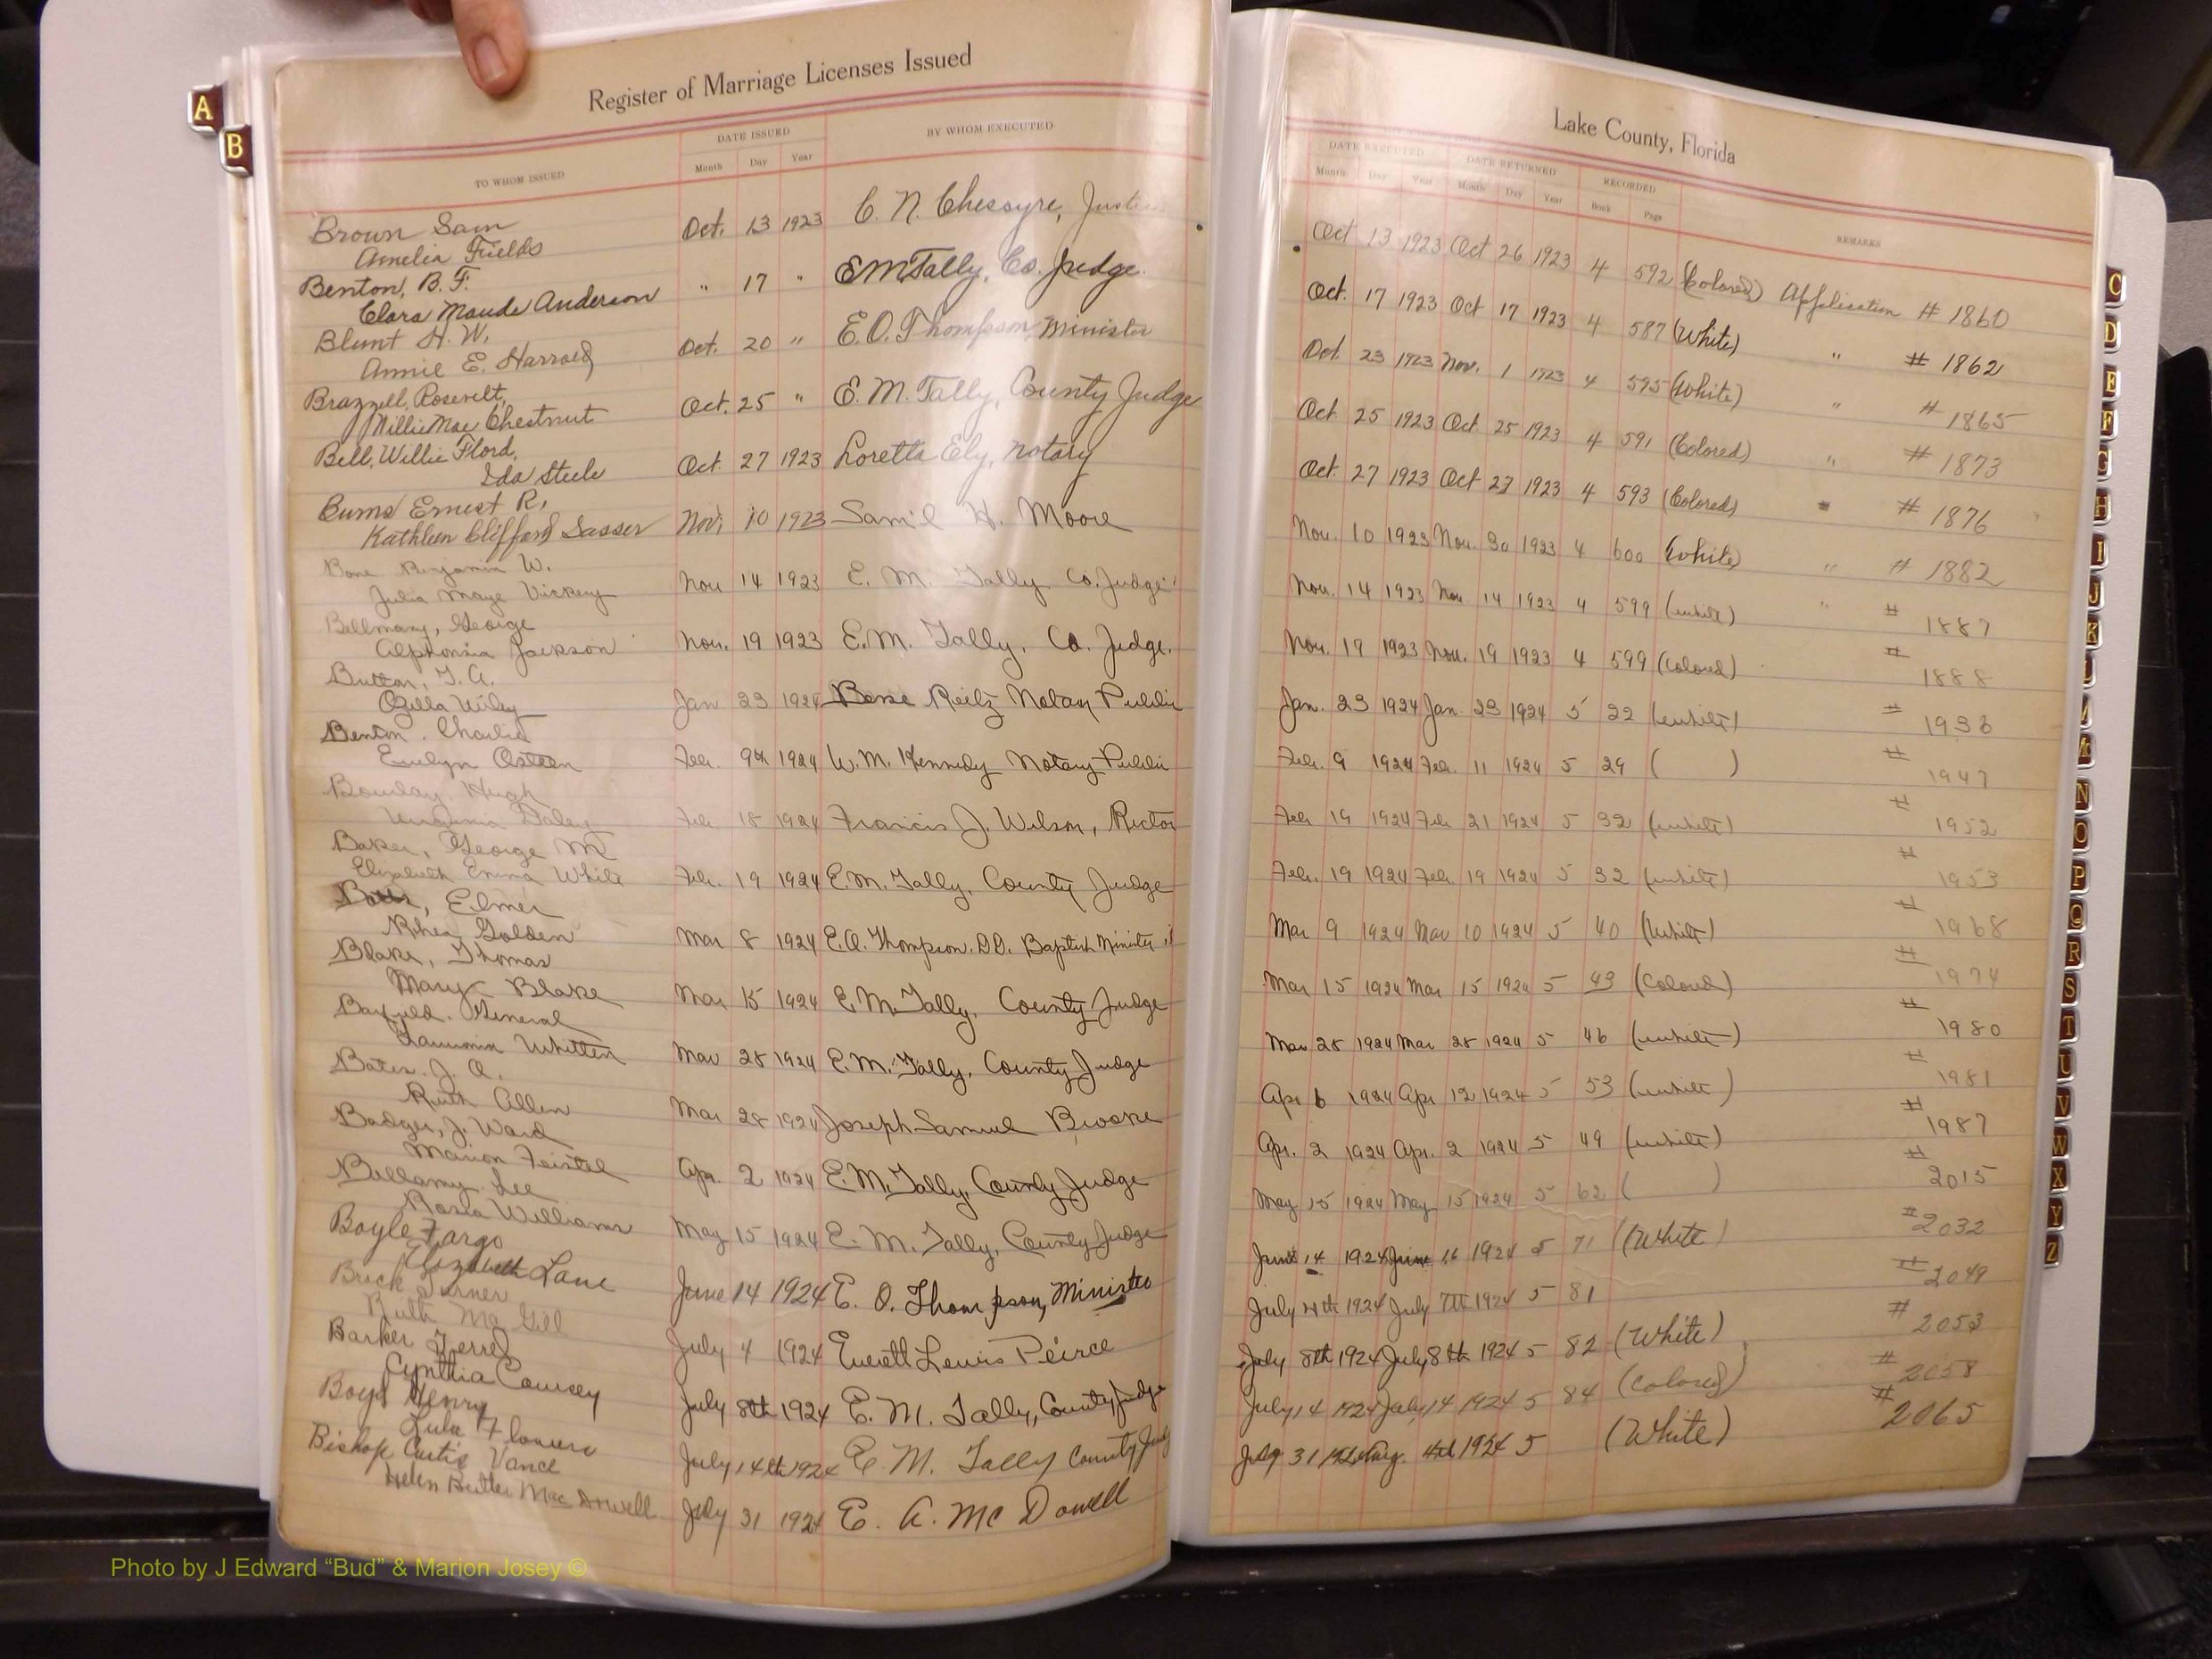 Register of Marriage Licenses Issued
TO WHOM ISSUED
DATE ISSUED
Month Day Year
BY WHOM EXECUTED
Brown Sam
Amelia Fields
Oct. 13 1923 C. N. Chesoyre, Justice
Benton, B. F.
Clara Maude Anderson
" 17 " E M Tally, Co. Judge.
Blunt H. W.
Annie E. Harrold
Oct. 20 " E. O. Thompson, Minister
Brazzell, Rosevelt,
Willie Mae Chestnut
Oct. 25 " E. M. Tally, County Judge
Bell, Willie Flord,
Ida Steele
Oct. 27 1923 Loretta Ely, notary
Burns Ernest R,
Kathleen Clifford Sasser
Nov. 10 1923 Sam'l H. Moore
Bone Benjamin W.
Julia Maye Vickery
Nov 14 1923 E. M. Tally Co. Judge
Bellmany, George
Alphonsia Jackson
Nov. 19 1923 E. M. Tally. Co. Judge.
T. A.
Ozella Wiley
Jan 23 1924 Reitz Notary Public
Benton. Charlie
Evelyn Osteen
Feb. 9th 1924 W. M. Kennedy Notary Public
Hugh
Virginia
Feb 18 1924 Francis J. Wilson, Rector
Baker, George M
Elizabeth Emma White
Feb. 19 1924 E. M. Tally, County Judge
Elmer
Rhea Golden
Mar 8 1924 E. O. Thompson. D.D. Baptist Minister
Blake, Thomas
Mary Blake
Mar 15 1924 E. M. Tally, County Judge
Barfield. General
Whitten
Mar 28 1924 E. M. Tally, County Judge
Bates. J. A.
Ruth Allen
Mar 28 1924 Joseph Samuel Brooke
Badger, J. Ward
Marion Feistel
Apr. 2 1924 E. M. Tally, County Judge
Bellamy. Lee
Rosia Williams
May 15 1924 E. M. Tally, County Judge
Boyle Fargo
Elizabeth Lane
June 14 1924 E. O. Thompson, Minister
Brock Turner
Ruth Mc Gill
July 4 1924 Everett Lewis Peirce
Barker Ferrel
Cynthia Causey
July 8th 1924 E. M. Tally, County Judge
Boyd Henry
Lula Flowers
July 14th 1924 E. M. Tally County Judg
Bishop Curtis Vance
Helen Butler Mac Dowell
July 31 1924 E. A. Mc Dowell
Lake County, Florida
DATE EXECUTED DATE RETURNED RECORDED
Month Day Year Month Day Year Book Page REMARKS
Oct 13 1923 Oct 26 1923 4 592 (Colored) Application # 1860
Oct. 17 1923 Oct 17 1923 4 587 (White) " # 1862
Oct. 23 1923 Nov. 1 1923 4 595 (White) " # 1865
Oct 25 1923 Oct. 25 1923 4 591 (Colored) " # 1873
Oct. 27 1923 Oct 27 1923 4 593 (Colored) " # 1876
Nov. 10 1923 Nov. 30 1923 4 600 (White) " # 1882
Nov. 14 1923 Nov 14 1923 4 599 (White) " # 1887
Nov. 19 1923 Nov. 19 1923 4 599 (Colored) # 1888
Jan. 23 1924 Jan. 23 1924 5 22 (White) # 1936
Feb. 9 1924 Feb. 11 1924 5 29 ( ) # 1947
Feb 19 1924 Feb 21 1924 5 32 (White) # 1952
Feb. 19 1924 Feb 19 1924 5 32 (White) # 1953
Mar 9 1924 Mar 10 1924 5 40 (White) # 1968
Mar 15 1924 Mar 15 1924 5 43 (Colored) # 1974
Mar 28 1924 Mar 28 1924 5 46 (White) # 1980
Apr 6 1924 Apr 12 1924 5 53 (White) # 1981
Apr. 2 1924 Apr. 2 1924 5 49 (White) # 1987
May 15 1924 May 15 1924 5 62 ( ) # 2015
June 14 1924 June 16 1924 5 71 (White) # 2032
July 4th 1924 July 7th 1924 5 81 # 2049
July 8th 1924 July 8th 1924 5 82 (White) # 2053
July 14 1924 July 14 1924 5 84 (Colored) # 2058
July 31 1924 Aug. 4th 1924 5 (White) # 2065
A
B
C
D
E
F
G
H
I
J
K
L
M
N
O
P
Q
R
S
T
U
V
W
X
Y
Z
Photo by J Edward “Bud” & Marion Josey ©